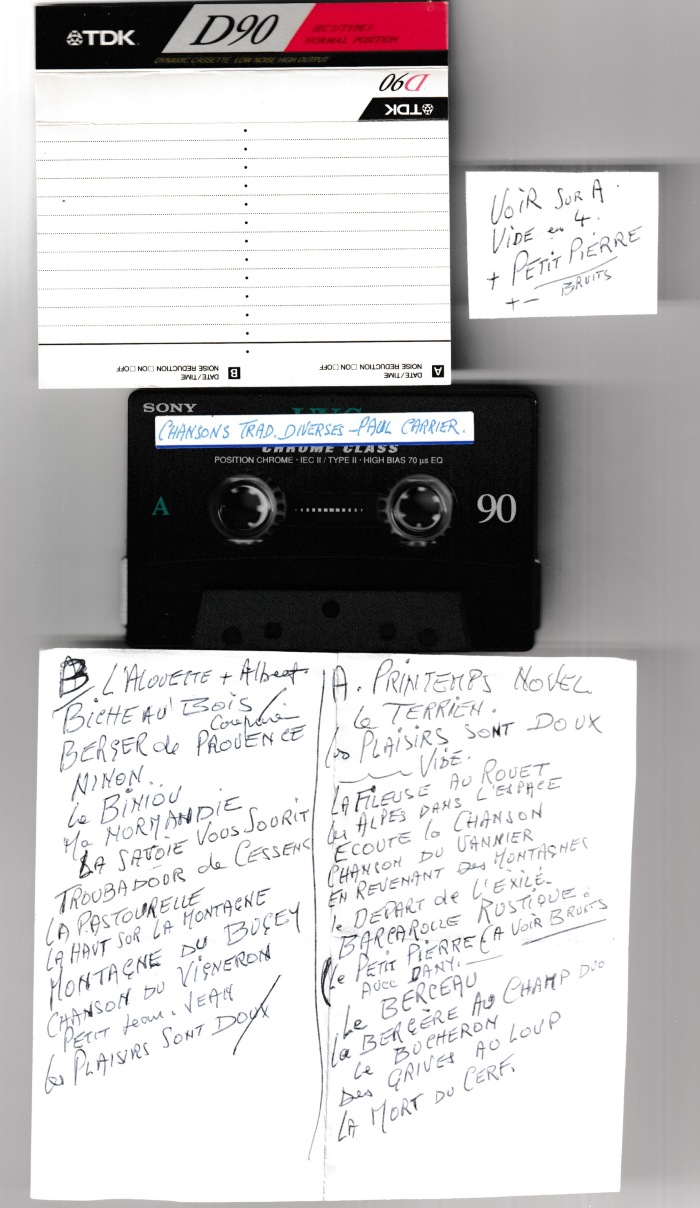 TDK D90 IEC I/TYPE I
NORMAL POSITION
DYNAMIC CASSETTE LOW NOISE HIGH OUTPUT
D90
TDK
A DATE/TIME
NOISE REDUCTION □ ON □ OFF
B DATE/TIME
NOISE REDUCTION □ ON □ OFF
VOIR SUR A.
VIDE en 4.
+ PETIT PIERRE
+ - BRUITS
SONY
CHANSONS TRAD. DIVERSES - PAUL CARRIER.
CHROME CLASS
POSITION CHROME · IEC II / TYPE II · HIGH BIAS 70 µs EQ
A 90
B. L'ALOUETTE + Albert
BICHE AU BOIS
BERGER de PROVENCE
NINON.
Le BINIOU
Ma NORMANDIE
LA SAVOIE VOUS SOURIT
TROUBADOUR de CESSENS
LA PASTOURELLE
LA HAUT SUR LA MONTAGNE
MONTAGNE DU BUGEY
CHANSON DU VIGNERON
PETIT Jean. JEAN
Les PLAISIRS SONT DOUX
A. PRINTEMPS NOVEL
Le TERRIEN.
Les PLAISIRS SONT DOUX
VIDE.
LA FILEUSE AU ROUET
Les ALPES DANS L'ESPACE
ECOUTE la CHANSON
CHANSON DU VANNIER
EN REVENANT Des MONTAGNES
le DEPART de L'EXILÉ.
BARCAROLLE RUSTIQUE.
Le PETIT PIERRE (A VOIR BRUITS
AVEC DANY.
Le BERCEAU
La BERGÈRE AU CHAMP DUO
Le BUCHERON
Des GRIVES AU LOUP
LA MORT DU CERF.